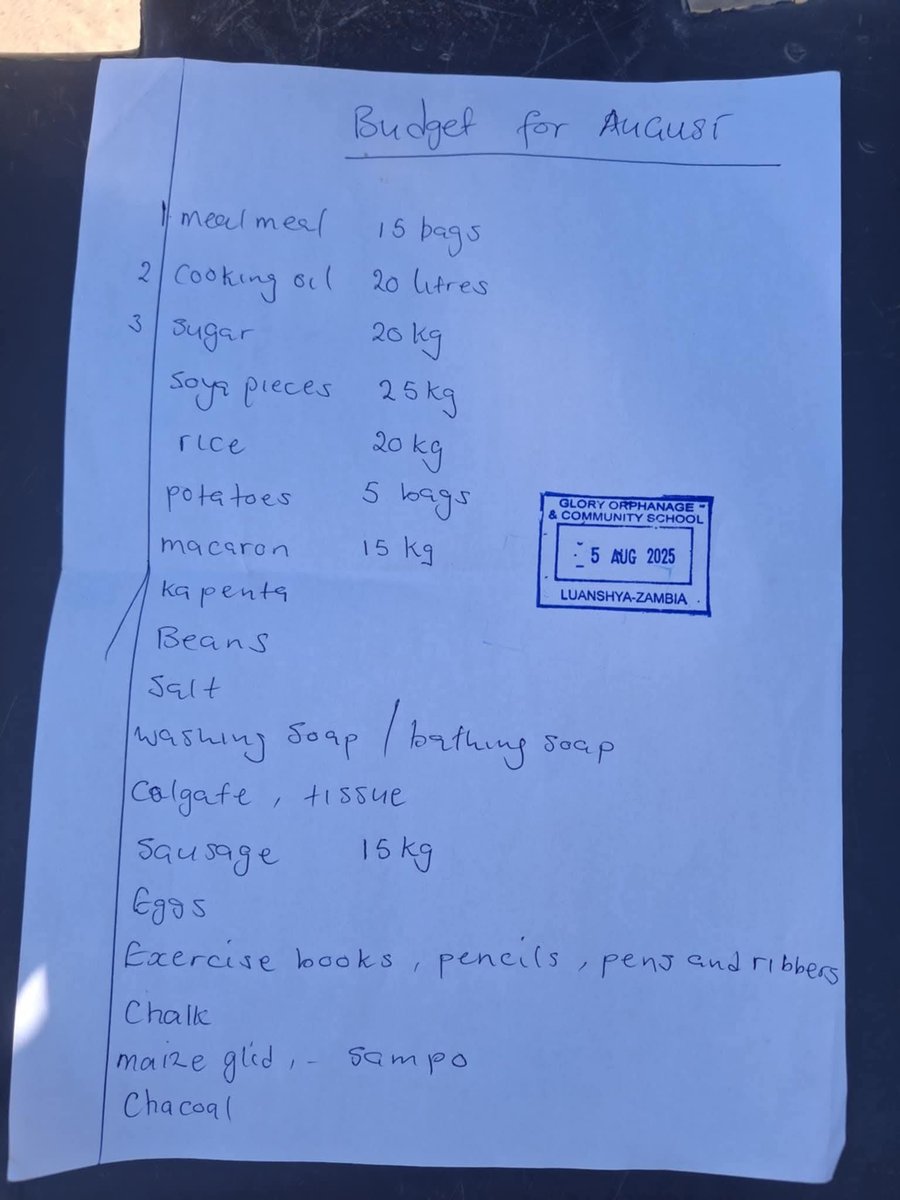 Budget for AUGUST
1 mealmeal 15 bags
2 Cooking oil 20 litres
3 Sugar 20 kg
Soya pieces 25 kg
rice 20 kg
potatoes 5 bags
macaron 15 kg
kapenta
Beans
Salt
washing soap / bathing soap
Colgate, tissue
Sausage 15 kg
Eggs
Exercise books, pencils, pens and ribbers
Chalk
maize glid, - Sampo
Chacoal
GLORY ORPHANAGE
& COMMUNITY SCHOOL
5 AUG 2025
LUANSHYA-ZAMBIA